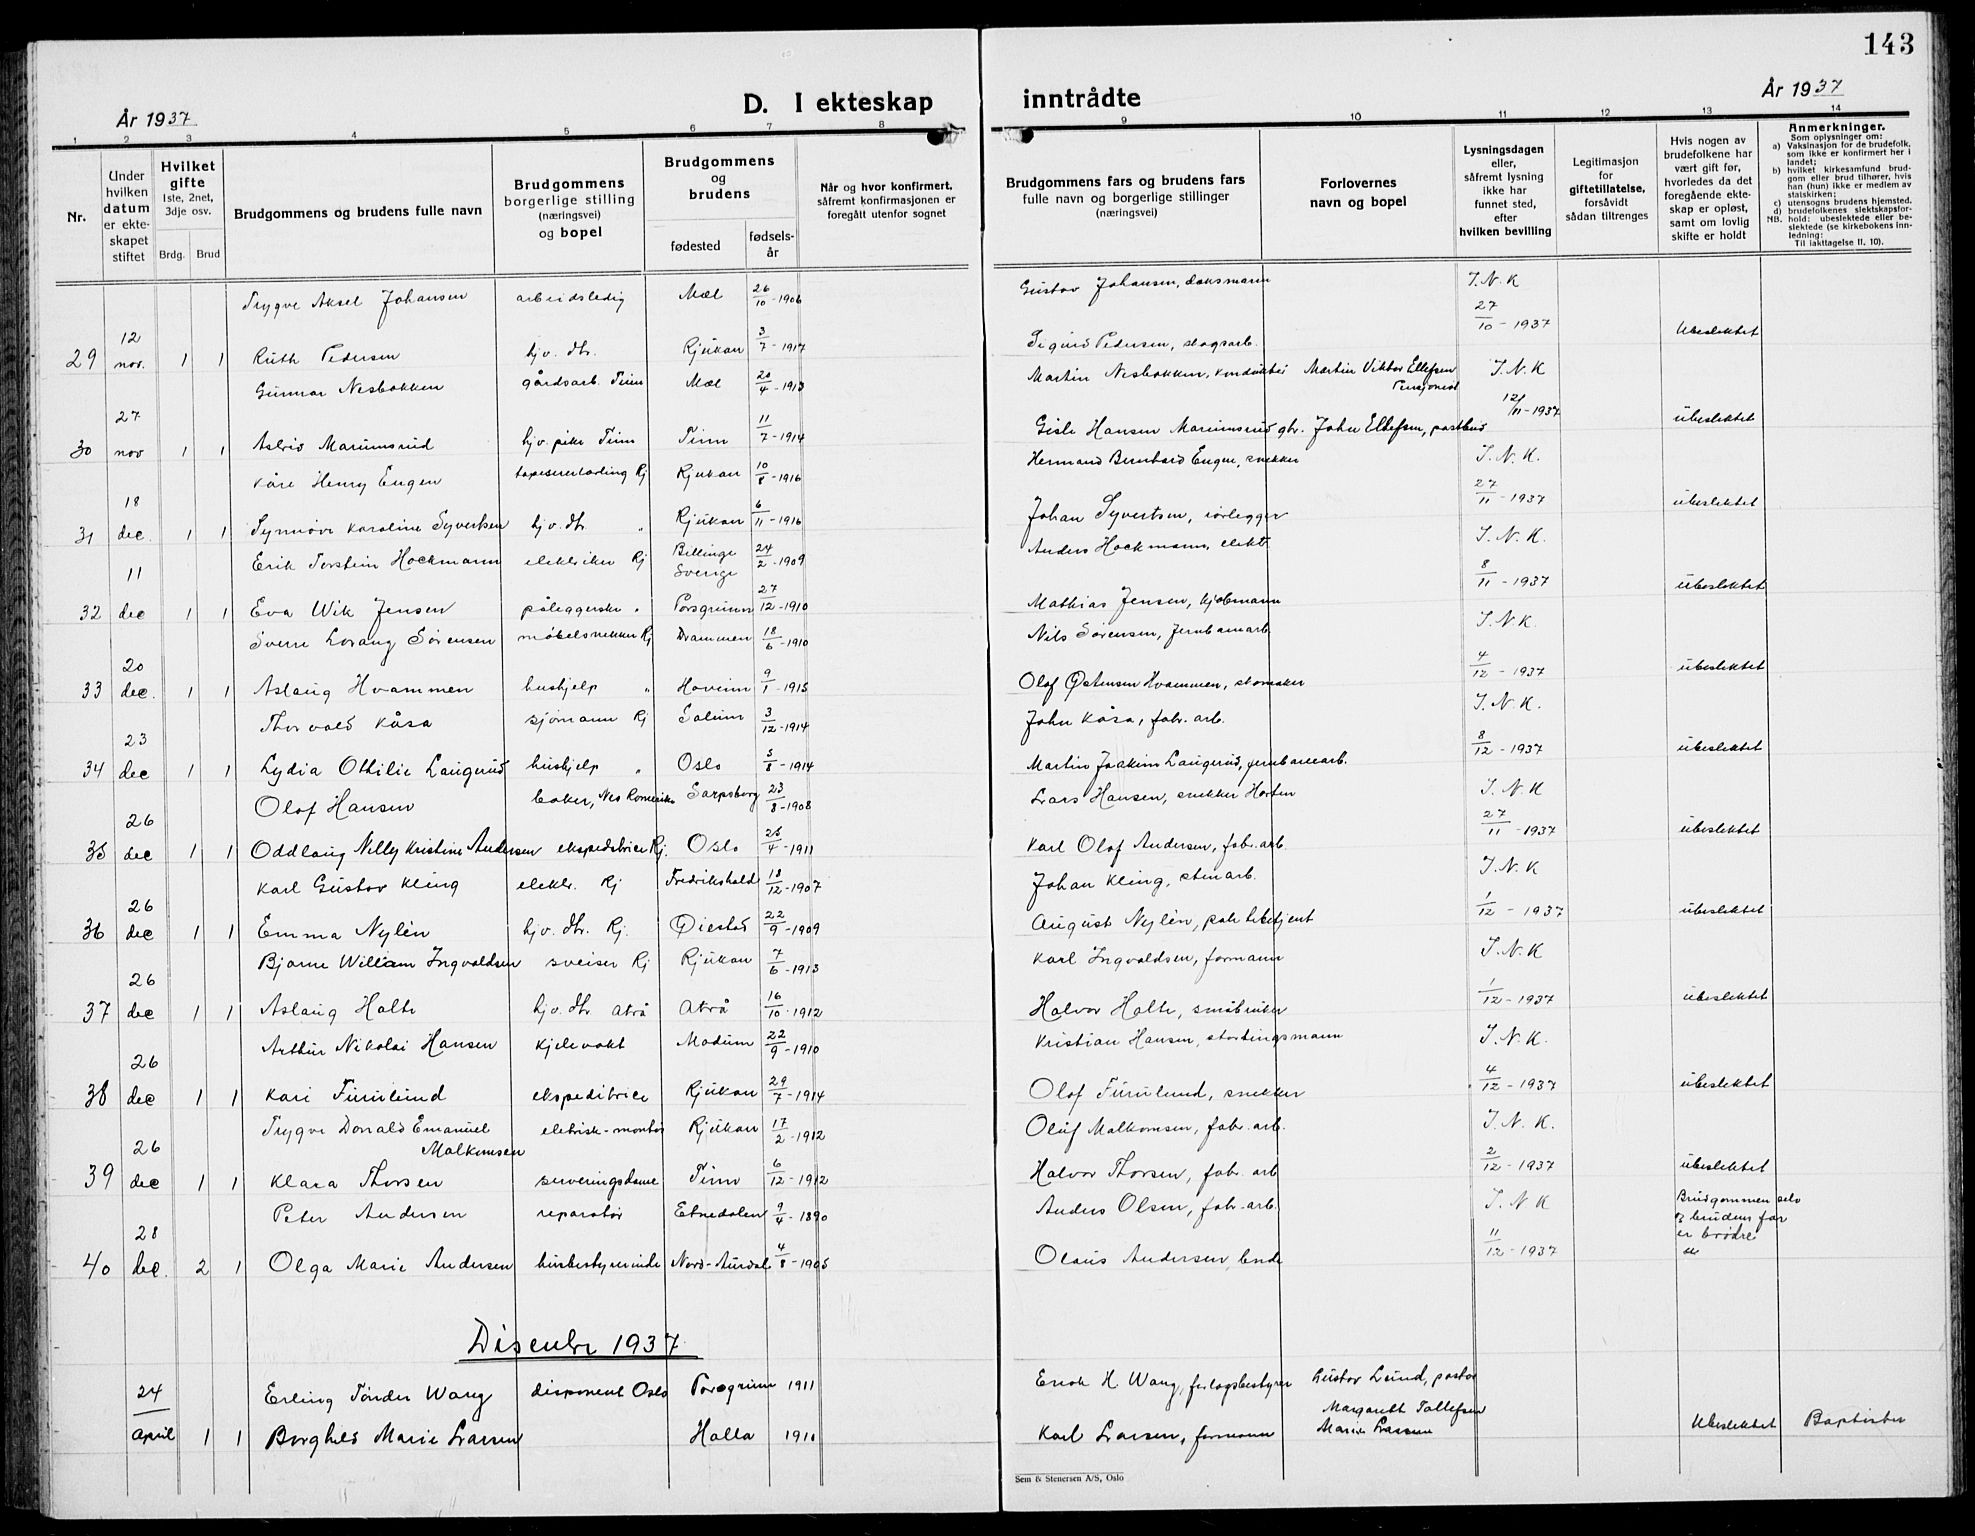 143
År 1937
D. I ekteskap
inntrådte
År 1937
1 2 3 4 5 6 7 8 9 10 11 12 13 14
Nr.
Under hvilken datum er ekteskapet stiftet
Hvilket gifte
1ste, 2net, 3dje osv.
Brdg. Brud
Brudgommens og brudens fulle navn
Brudgommens borgerlige stilling (næringsvei) og bopel
Brudgommens og brudens
fødested
fødselsår
Når og hvor konfirmert, såfremt konfirmasjonen er foregått utenfor sognet
Brudgommens fars og brudens fars fulle navn og borgerlige stillinger (næringsvei)
Forlovernes navn og bopel
Lysningsdagen eller, såfremt lysning ikke har funnet sted, efter hvilken bevilling
Legitimasjon for giftetillatelse, forsåvidt sådan tiltrenges
Hvis nogen av brudefolkene har vært gift før, hvorledes da det foregående ekteskap er opløst, samt om lovlig skifte er holdt
Anmerkninger.
Som oplysninger om:
a) Vaksinasjon for de brudefolk, som ikke er konfirmert her i landet;
b) hvilket kirkesamfund brudgom eller brud tilhører, hvis han (hun) ikke er medlem av statskirken;
c) utensogns brudens hjemsted.
d) brudefolkenes slektskapsforhold: ubeslektede eller beslektede (se kirkebokens innledning:
NB.
Til iakttagelse II. 10).
Trygve Aksel Johansen arbeidsledig Mæl 26/10-1906 Gustav Johansen, J.N.K
29 12 nov. 1 1 Ruth Pedersen hjv. dtr. Rjukan 3/7-1917 Sigurd Pedersen, skogsarb. 27/10-1937 Ubeslektet
Gunnar Nesbakken gårdsarb. Tinn Mæl 20/4-1913 Martin Nesbakken, konduktør Martin Viktor Ellefsen Pensjonist J.N.K
30 27 nov 1 1 Astrid Marumsrud hjv. pike Tinn Tinn 11/7-1914 Gisle Hansen Marumsrud gbr. John Ellefsen, postbud 12/11-1937 ubeslektet
Kåre Henry Engen tapesererlærling Rj Rjukan 10/8-1916 Hermand Bernhard Engen, snekker J.N.K.
31 18 dec 1 1 Synnøve Karoline Syvertsen hjv. dtr. " Rjukan 6/11-1916 Johan Syvertsen, rørlegger 27/11-1937 ubeslektet
Erik Torstein Hockmann elektriker Rj Billinge Sverige 24/2-1909 Anders Hockmann, elektr J.N.K.
32 11 dec 1 1 Eva Wik Jensen påleggerske " Porsgrunn 27/12-1910 Mathias Jensen, kjøbmann 8/11-1937 ubeslektet
Sverre Lorang Sørensen møbelsnekker Rj Drammen 18/6-1910 Nils Sørensen, Jernbanearb. J.N.K.
33 20 dec. 1 1 Aslaug Hvammen hushjelp " Hovinn 9/1-1915 Olof Østensen Hvammen, skomaker 4/12-1937 ubeslektet
Thorvald Kåsa sjømann Rj Solum 3/12-1914 John Kåsa, fabr. arb. J.N.K.
34 23 dec 1 1 Lydia Othilie Laugerud hushjelp " Oslo 5/8-1914 Martin Joakim Laugerud, jernbanearb. 8/12-1937 ubeslektet
Olaf Hansen baker, Nes Romerike Sarpsborg 23/8-1908 Lars Hansen, snekker Horten J.N.K
35 26 dec 1 1 Oddlaug Nelly Kristine Andersen ekspeditrice Rj. Oslo 25/4-1911 Karl Olaf Andersen, fabr. arb. 27/11-1937 ubeslektet
Karl Gustav Kling elektr. Rj Fredrikshald 18/12-1907 Johan Kling, stenarb. J.N.K
36 26 dec 1 1 Emma Nylén hjv. dtr. Rj. Øiestad 22/9-1909 August Nylén, politibetjent 1/12-1937 ubeslektet
Bjarne William Ingvaldsen sveiser Rj Rjukan 7/6-1913 Karl Ingvaldsen, formann J.N.K
37 26 dec 1 1 Aslaug Holte hjv. dtr Atrå Atrå 16/10-1912 Halvor Holte, småbruker 1/12-1937 ubeslektet
Arthur Nikolai Hansen kjelevakt Modum 22/9-1910 Kristian Hansen, stortingsmann J.N.K.
38 26 dec 1 1 Kari Furulund ekspeditrice Rjukan 29/7-1914 Olaf Furulund, snekker 4/12-1937 ubeslektet
Trygve Donald Emanuel Malkomsen eletrisk-montør Rjukan 17/2-1912 Oluf Malkomsen, fabr. arb. J.N.K.
39 26 dec 1 1 Klara Thorsen serveringsdame Tinn 6/12-1912 Halvor Thorsen, fabr. arb 2/12-1937 ubeslektet
Peter Andersen reparatør Etnedalen 9/4-1890 Anders Olsen, fabr-arb. J.N.K Brudgommen selv og brudens far er brødre
40 28 dec. 2 1 Olga Marie Andersen husbestyrerinde Nord-Aurdal 4/8-1905 Olaus Andersen, bonde 11/12-1937
Disenter 1937
24 Erling Tønder Wang disponent Oslo Porsgrunn 1911 Enok H Wang, forlagsbestyrer Gustav Lund, pastor
Margareth Tollefsen
April 1 1 Borghild Marie Larsen Holla 1911 Karl Larsen, formann Marie Larsen Ubeslektet Baptister
Sem & Stenersen A/S, Oslo